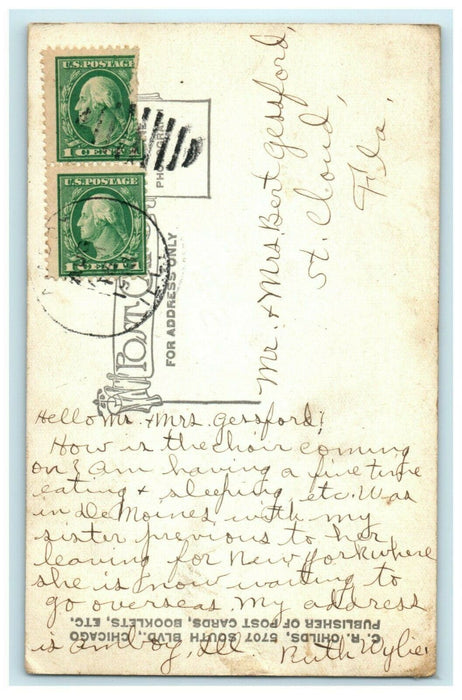 U.S. POSTAGE
1 CENT 1
U.S. POSTAGE
1 CENT 1
POST
FOR ADDRESS ONLY
Mr. + Mrs. Bert Gessford,
St. Cloud,
Fla.
Hello Mr. + Mrs. Gessford;
How is the choir coming
on? Am having a fine time
eating + sleeping, etc. Was
in Des Moines with my
sister previous to her
leaving for New York where
she is now waiting to
go overseas. My address
is Amboy, Ill. Ruth Wylie
C. R. CHILDS, 5707 SOUTH BLVD., CHICAGO
PUBLISHER OF POST CARDS, BOOKLETS, ETC.